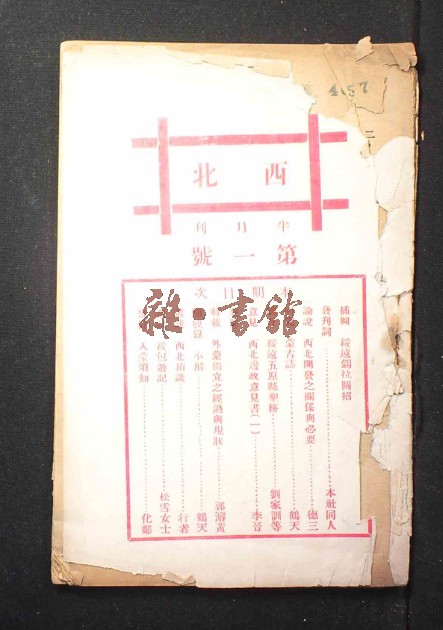 457
二
西北
半月刊
第一號
本期目次
插輯 綏遠錫拉圖招
發刊詞……本社同人
論說 西北開發之關係與必要……德三
蒙古誌……鶴天
綏遠五原縣墾務……劉家訓等
意見 西北邊政意見書(一)……李晉
外蒙獨立之經過與現狀……郭濬黃
不解……鶴天
西北瑣談……行者
綏包遊記……松雪女士
入堂須知……化鄰
雜·書館